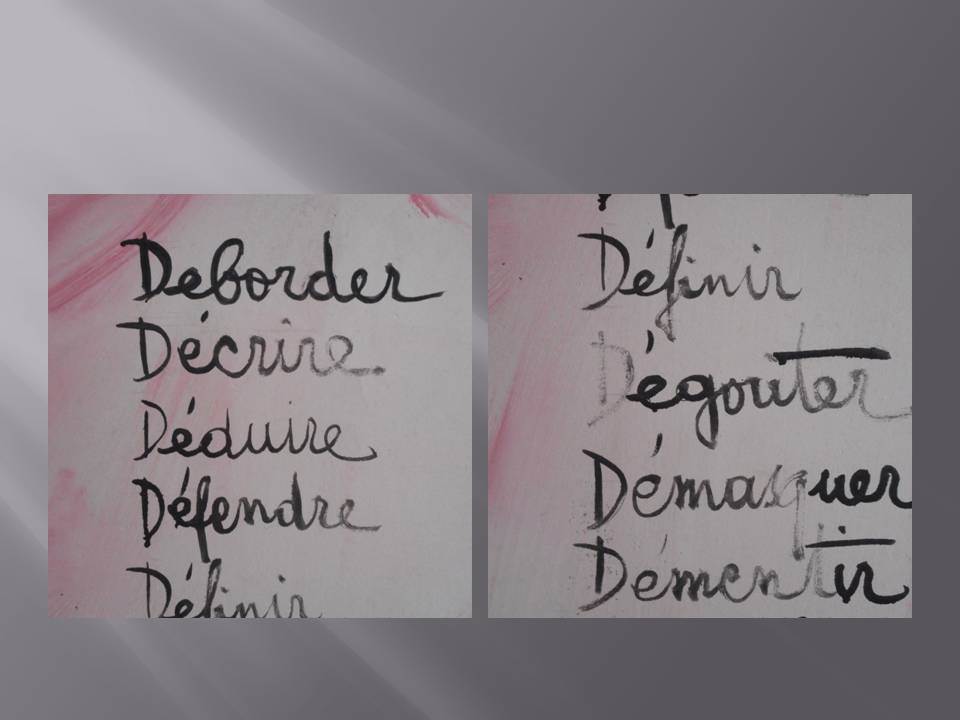 Deborder
Décrire.
Déduire
Défendre
Définir
Définir
Dégouter
Démasquer
Démentir